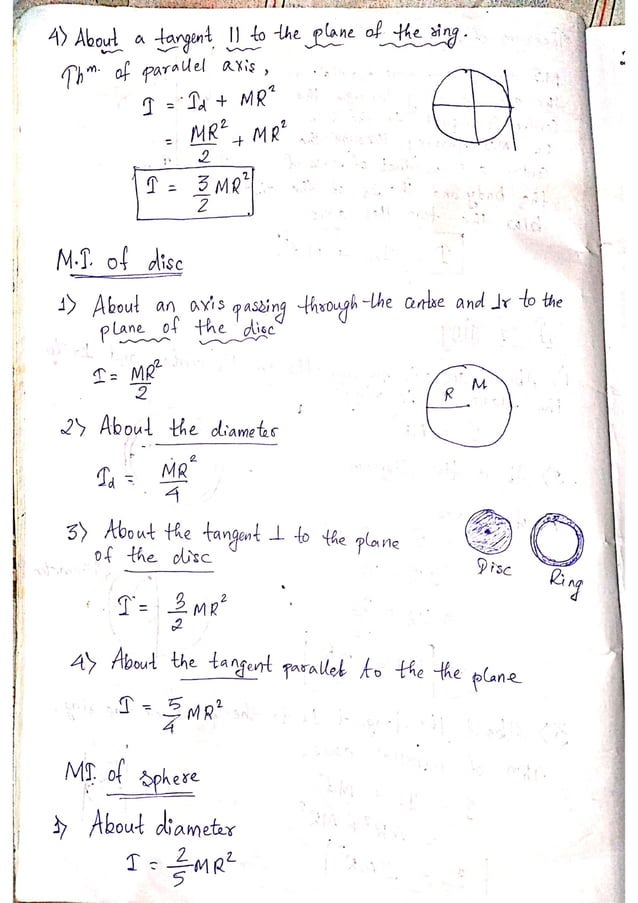 4) About a tangent || to the plane of the ring.
Thm. of parallel axis,
I = Id + MR²
= MR²/2 + MR²
I = 3/2 MR²
M.I. of disc
1) About an axis passing through the centre and ⊥r to the
plane of the disc
I = MR²/2
R M
2) About the diameter
Id = MR²/4
3) About the tangent ⊥ to the plane
of the disc
Disc Ring
I = 3/2 MR²
4) About the tangent parallel to the the plane
I = 5/4 MR²
MI. of sphere
1) About diameter
I = 2/5 MR²